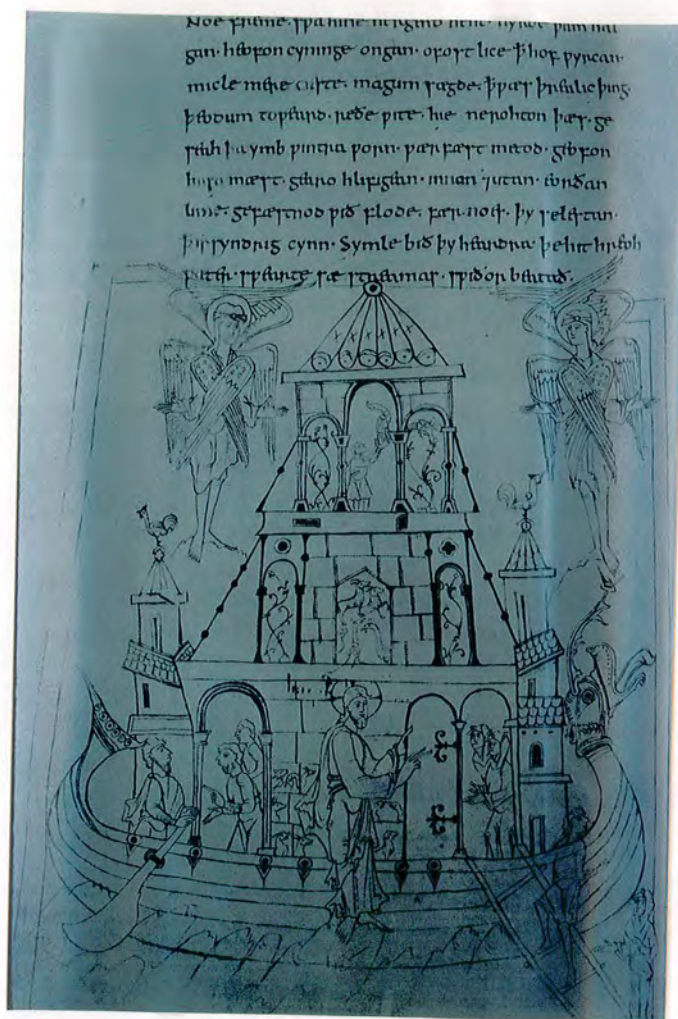 Noe freme· spa hine nergend heht· hyrde þam hal
gan· heofon cyninge ongan· ofost lice þ hof pyrcan·
micle mere cieste· magum sægde· þ pær þrealic þing·
þeodum topeard· reðe pite· hie ne rohton þæs· ge
seah þa ymb pintra porn· pær fæst metod· geofon
husa mæst· gearo hlifigean· innan ⁊ utan· eorðan
lime· gefæstnod pið flode· fær· noes· þy selestan·
þ is syndrig cynn· Symle bið þy heardra þe hit hreoh
pæter· spearte sæ streamas· spiðor beatað·